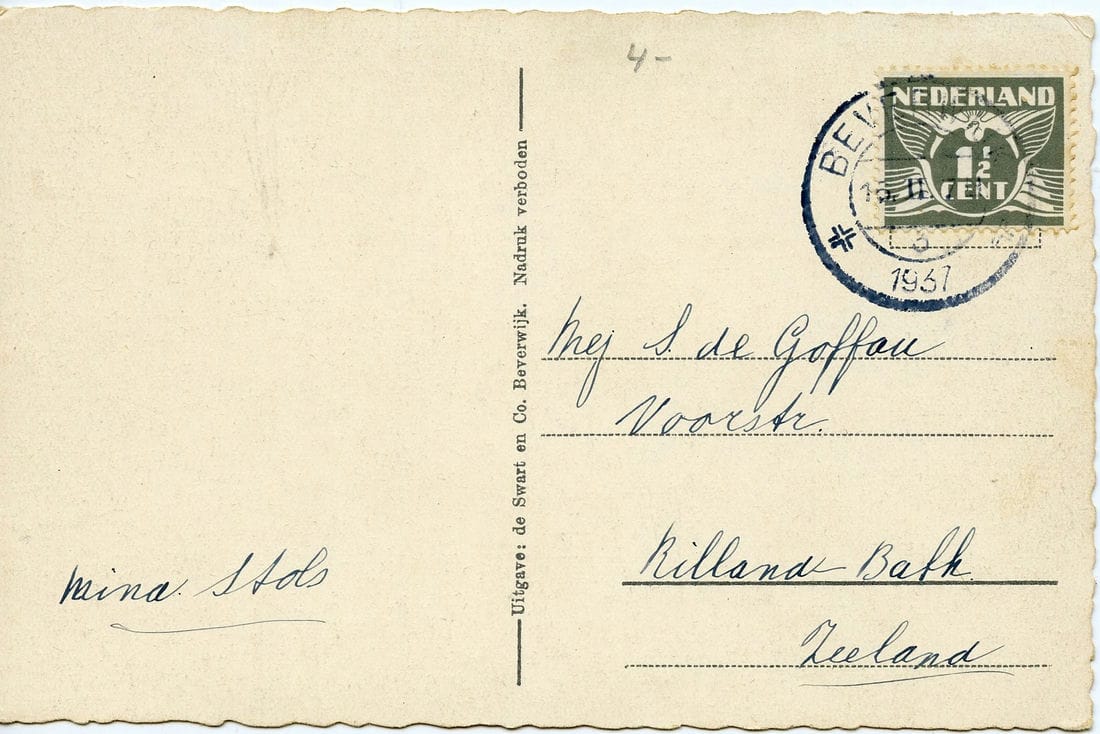 4-
NEDERLAND
1½
CENT
BEVERWIJK
15.II.
3
1937
Uitgave: de Swart en Co. Beverwijk. Nadruk verboden
Mej S. de Goffau
Voorstr.
Rilland Bath
Zeeland
Mina Stols